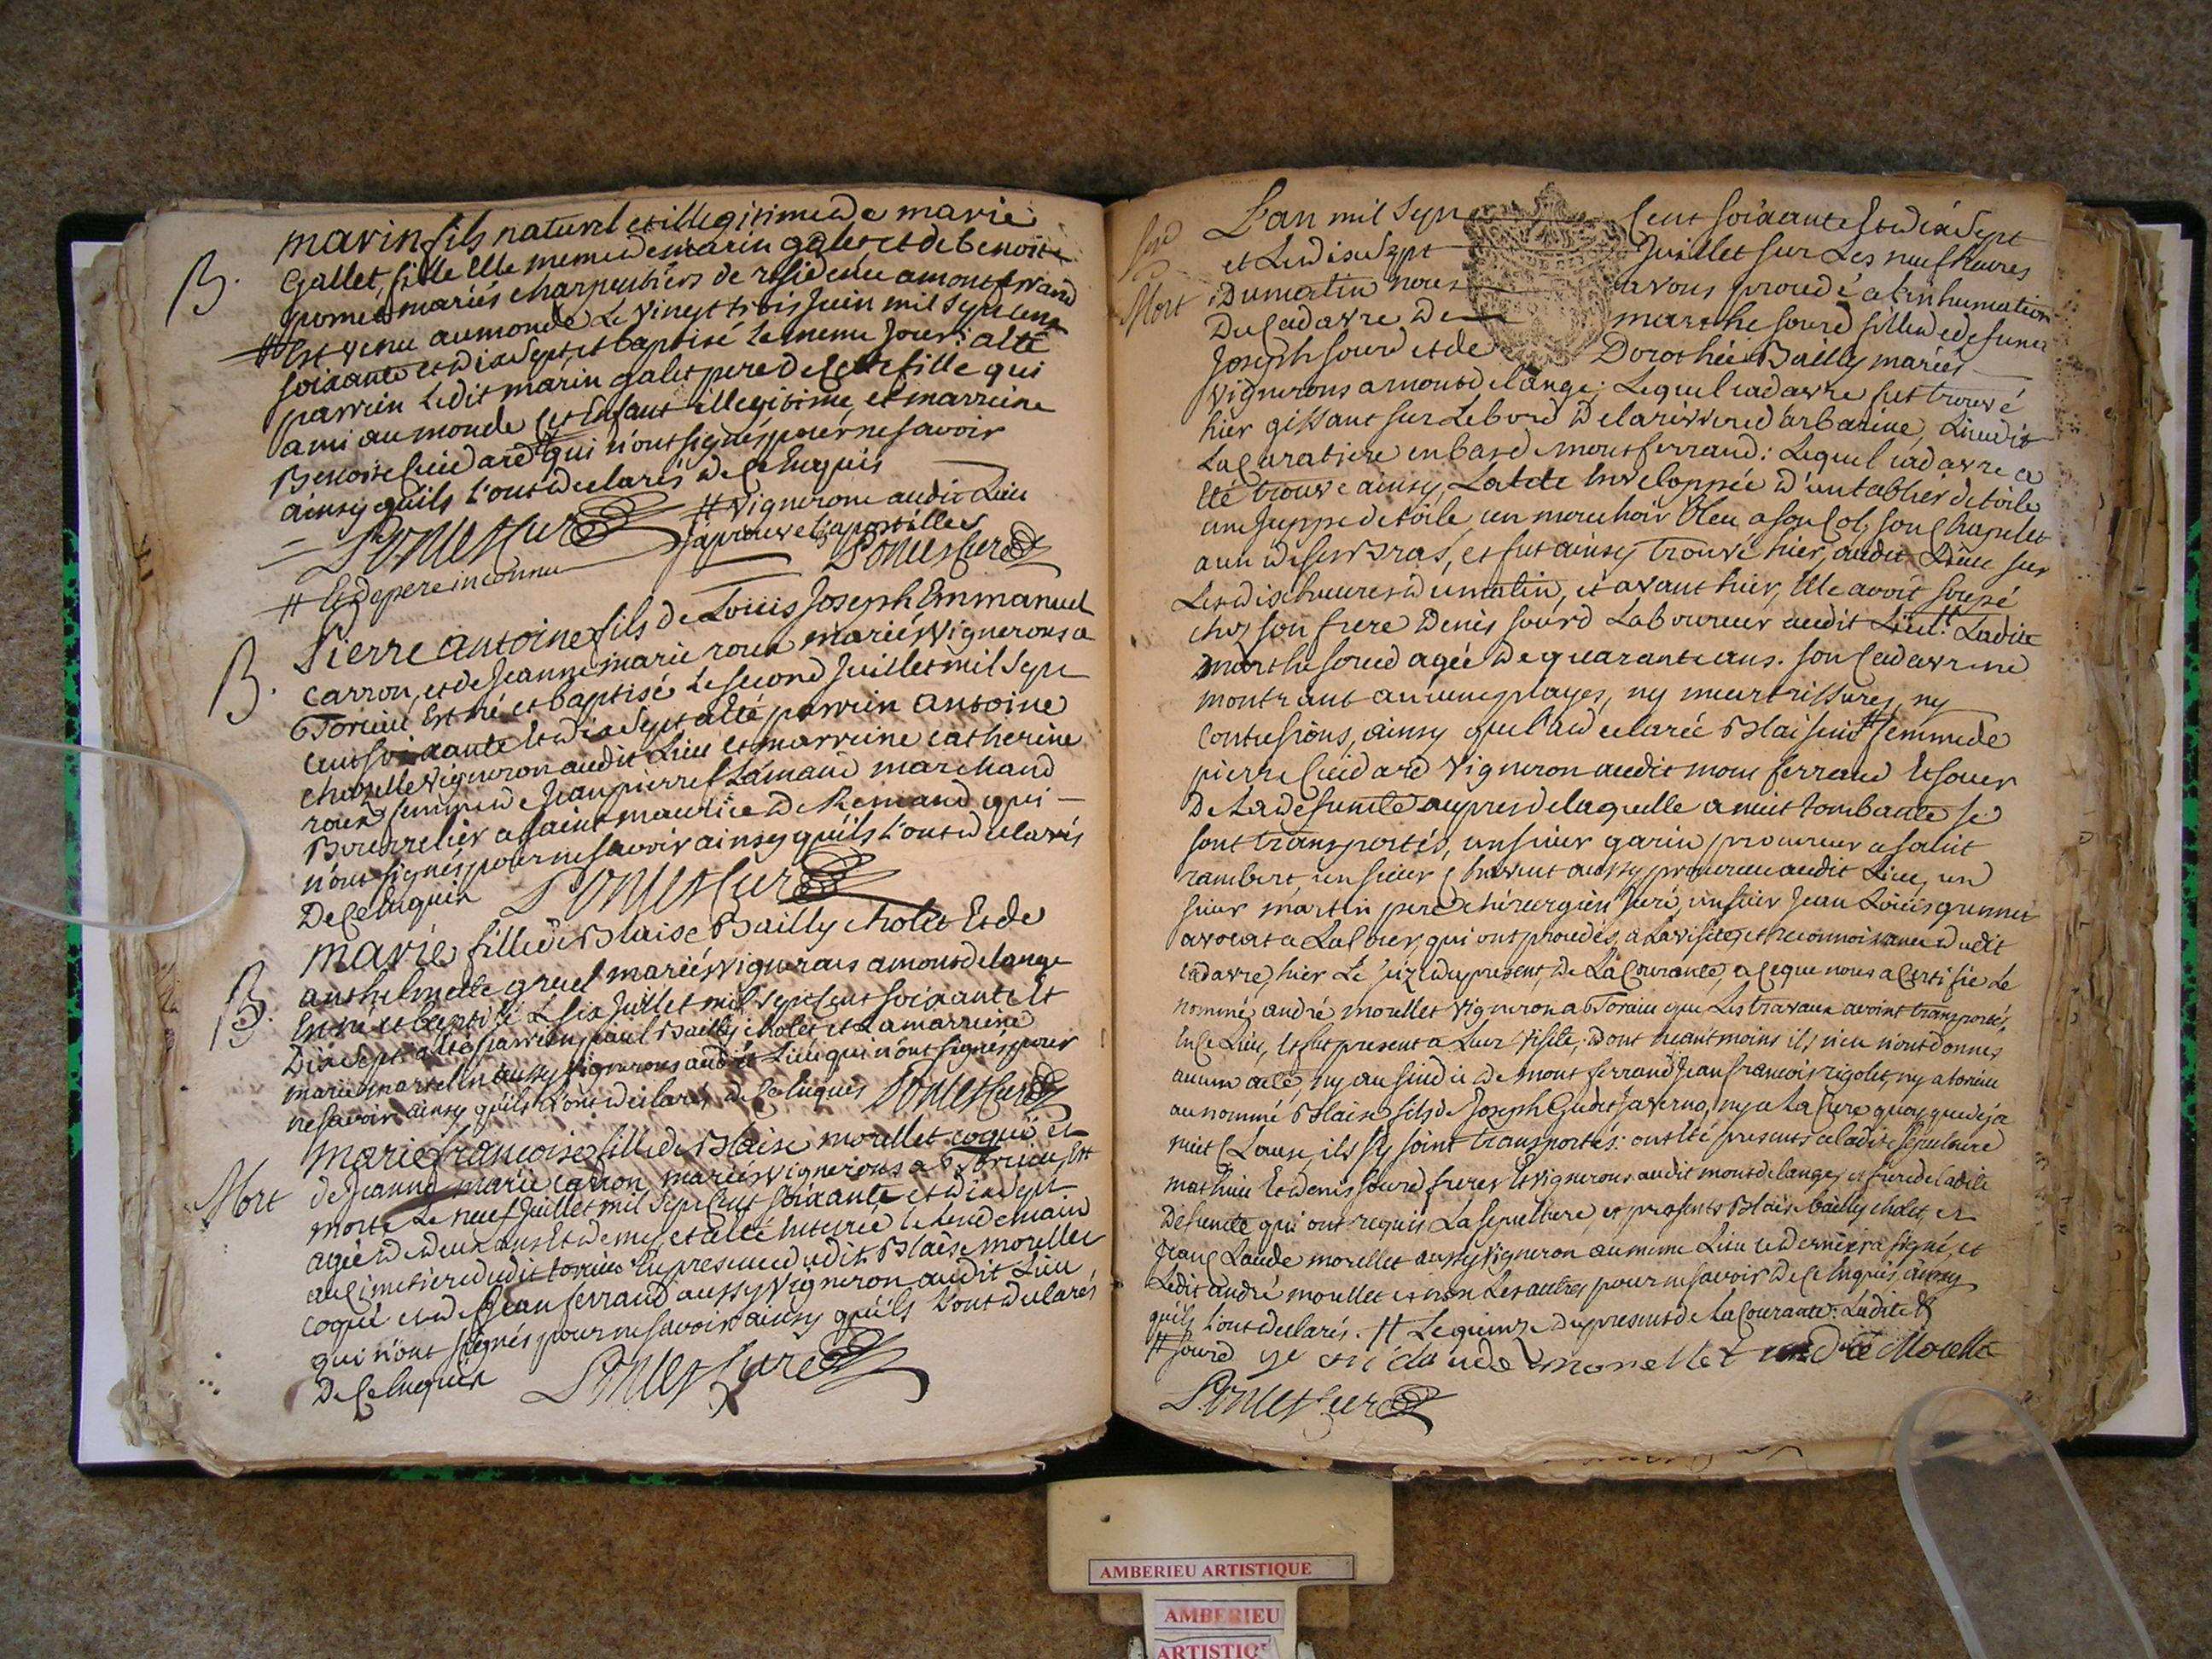 B.
marin fils naturel et illegitime de marie
Gallet, fille elle meme de marin galet et de benoite
pomet mariés charpentiers de residence a montferrand
# Est venu au monde Le vingt trois Juin mil sept cent
soixante et dix sept, et baptisé le meme jour: a été
parrein Ledit marin galet pere de cette fille qui
a mi au monde cet Enfant illegitime, et marreine
Benoite Cuidard # qui n'ont signés pour ne savoir
ainsy qu'ils l'ont declarés de ce Enquis
# vigneronne audit Lieu
j'aprouve l'apostilles
# Et de pere inconnu
B.
Pierre antoine fils de Loüis Joseph Emmanuel
Carron, et de Jeanne marie roux mariés vignerons a
Torcieu Est né et baptisé Le second Juillet mil sept
cent soixante Et dix Sept a été parrein antoine
chapelle vigneron audit Lieu et marreine catherine
roux femme de Jean pierre marchand
Bourrelier a saint maurice de Remand qui
n'ont signés pour ne savoir ainsy qu'ils l'ont declarés
De ce Enquis
B.
marie fille de Blaise Bailly cholet Et de
anthelmette gruel mariés vignerons a montdelange
Est né et baptisé Le six Juillet mil sept Cent soixante Et
Dix Sept a été parrein paul Bailly cholet et La marreine
marie martelin aussy vignerons audit Lieu qui n'ont signés pour
ne savoir ainsy qu'ils l'ont declarés de ce Enquis
Mort
marie francoise fille de Blaise morellet coqué et
de Jeanne marie carron mariés vignerons a Torcieu, Est
morte Le neuf Juillet mil Sept Cent soixante et dix sept
agée de deux ans Et demy, et a été Enterrée le lendemain
au Cimetiere dudit torcieu En presence dudit Blaise morellet
coqué et de Jean ferrand aussy vigneron audit Lieu,
qui n'ont signés pour ne savoir ainsy qu'ils l'ont declarés
De ce Enquis
Mort
L'an mil Sept Cent soixante Et dix Sept
et Le dix Sept Juillet sur Les neuf heures
Du matin nous avons procedé a l'inhumation
Du Cadavre de marthe sourd fille de defunct
Joseph sourd et de Dorothée Bailly mariés
vignerons a montdelange; Lequel cadavre fut trouvé
hier gissant sur Le bord de la riviere d'arbarine, Lieudit
La en bas de montferrand: Lequel cadavre a
Eté trouvé ainsy, La tete Enveloppée d'un tablier de toile
une Juppe de toile un mouchoir bleu a son Col, son Chapelet
a un de ses bras, et fut ainsy trouvé hier, audit Lieu sur
Les dix heures du matin, et avant hier, Elle avoit soupé
chez son frere Denis sourd Laboureur audit Lieu. # Ladite
marthe sourd agée de quarante ans. son Cadavre ne
montrant aucune playes, ny meurtrissures, ny
Contusions, ainsy que l'a declarée Blaisine # femme de
pierre Cuidard vigneron audit mont ferrand Et soeur
De La defuncte aupres de laquelle a nuit tombante se
sont transportés, un sieur garin procureur a saint
rambert, un sieur aussy procureur audit Lieu, un
sieur martin pere chirurgien juré, un sieur Jean Loüis
avocat a qui ont procedés, a La visite et reconnoissance dudit
cadavre, hier Le seize du present, de La Courante, a Ce que nous a Certifié Le
nommé andré morellet vigneron a Torcieu que Les travaux avoint transportés
En Ce Lieu, Et fut present a Leur visite; dont neantmoins ils n'en n'ont donnés
aucun acte, ny au sindic de mont ferrand Jean francois rigolet, ny a torcieu
au nommé Blaise fils de Joseph ny a La Cure quoyque deja
nuit Close, ils s'y soint transportés: ont été presents a ladite sepulture
mathieu Et denis sourd freres Et vignerons audit montdelange, et freres de ladite
Defuncte qui ont requis La sepulture, et presents Blaise bailly cholet, et
Jean Claude morellet aussy vigneron au meme Lieu ce dernier a signé, et
Ledit andré morellet et non Les autres pour ne savoir de ce Enquis, ainsy
qu'ils l'ont declarés. # Le quinze du present de La Courante. Ladite
# sourd claude morellet andre Morellet
AMBERIEU ARTISTIQUE
AMBERIEU
ARTISTIQ